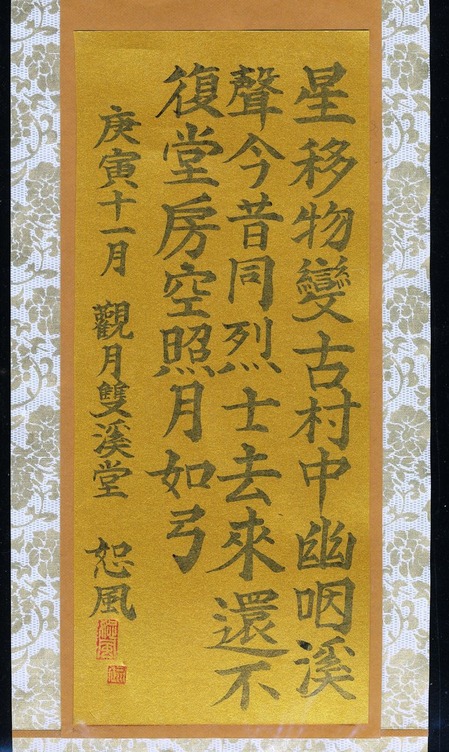 星移物變古村中幽咽溪
聲今昔同烈士去來還不
復堂房空照月如弓
庚寅十一月 觀月雙溪堂 恕風